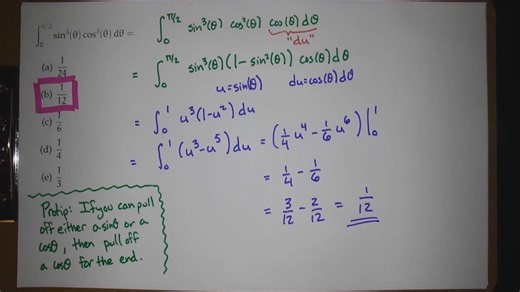 ∫₀^{π/2} sin³(θ) cos³(θ) dθ =
(a) 1/24
(b) 1/12
(c) 1/6
(d) 1/4
(e) 1/3
∫₀^{π/2} sin³(θ) cos²(θ) cos(θ) dθ
"du"
= ∫₀^{π/2} sin³(θ)(1-sin²(θ)) cos(θ) dθ
u = sin(θ) du = cos(θ) dθ
= ∫₀¹ u³(1-u²) du
= ∫₀¹ (u³-u⁵) du = (1/4 u⁴ - 1/6 u⁶) |₀¹
= 1/4 - 1/6
= 3/12 - 2/12 = 1/12
Protip: If you can pull
off either a sinθ or a
cosθ, then pull off
a cosθ for the end.